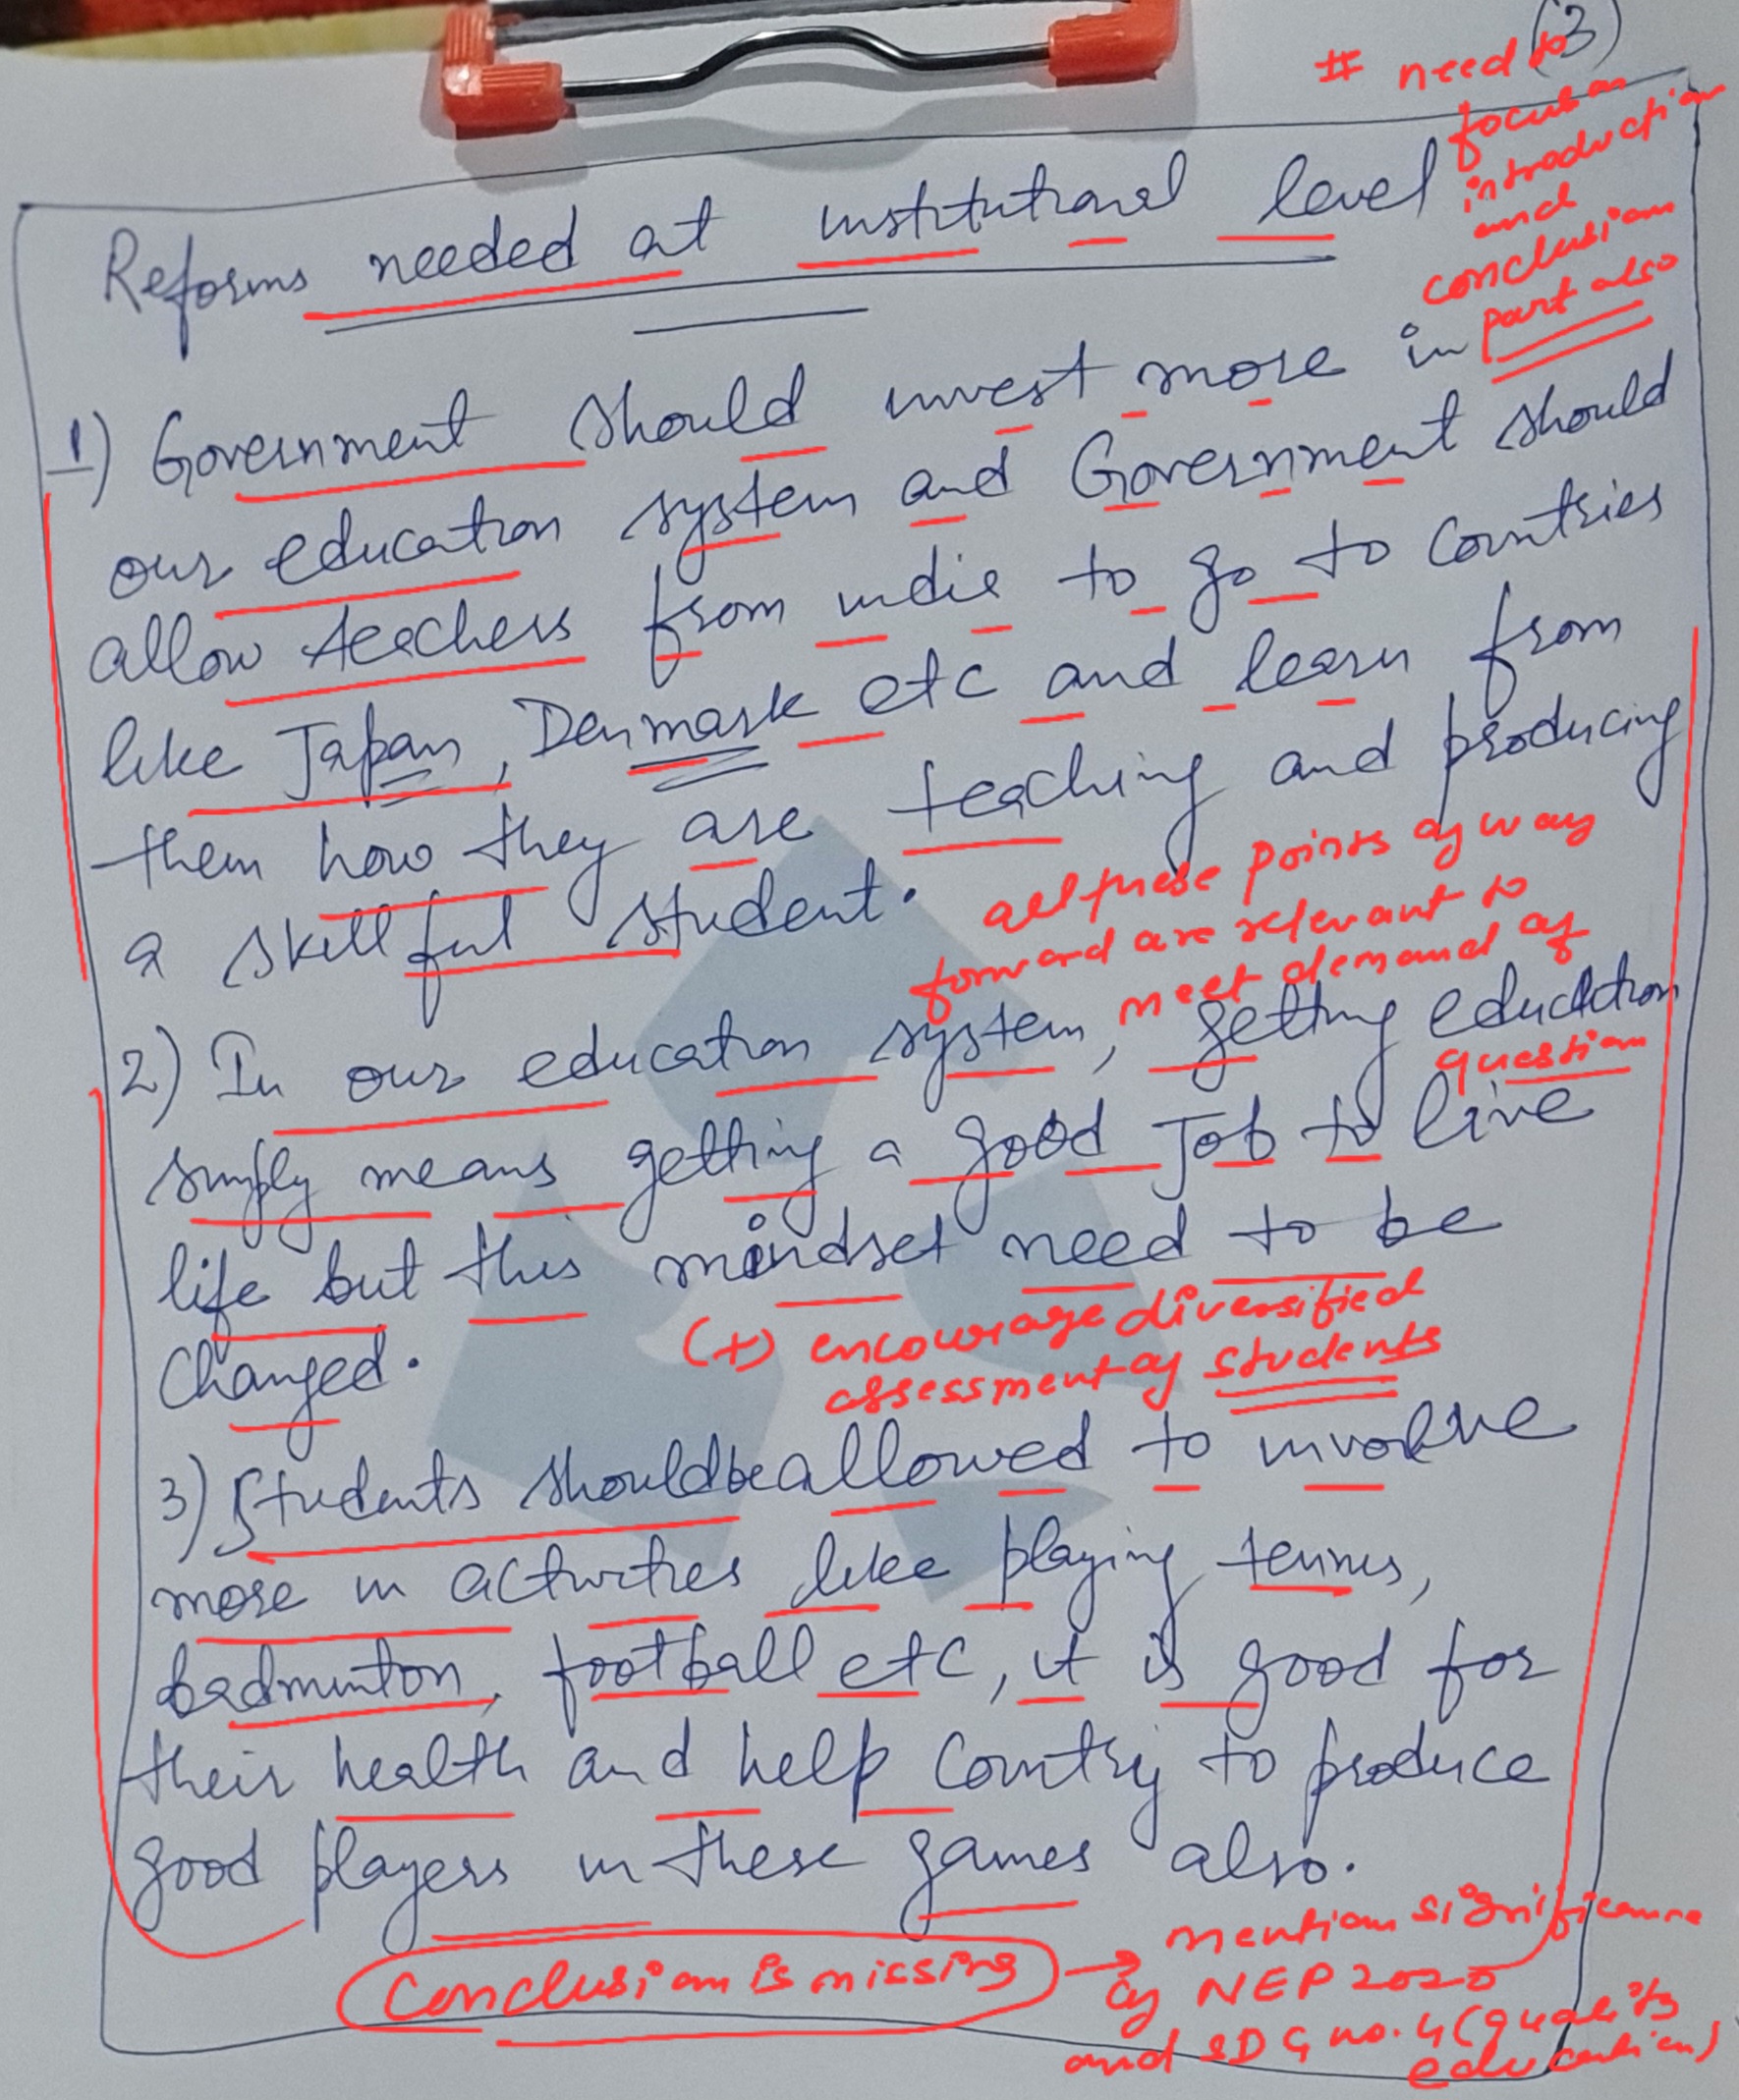 (3)
# need to
focus on
introduction
and
conclusion
part also
Reforms needed at institutional level
1) Government should invest more in
our education system and Government should
allow teachers from india to go to countries
like Japan, Denmark etc and learn from
them how they are teaching and producing
a skillful student.
all these points of way
forward are relevant to
meet demand of
question
2) In our education system, getting education
simply means getting a good Job to live
life but this mindset need to be
changed.
(+) encourage diversified
assessment of students
3) Students should be allowed to involve
more in activities like playing tennis,
badminton, football etc, it is good for
their health and help Country to produce
good players in these games also.
Conclusion is missing → mention significance
of NEP 2020
and SDG no. 4 (quality
education)